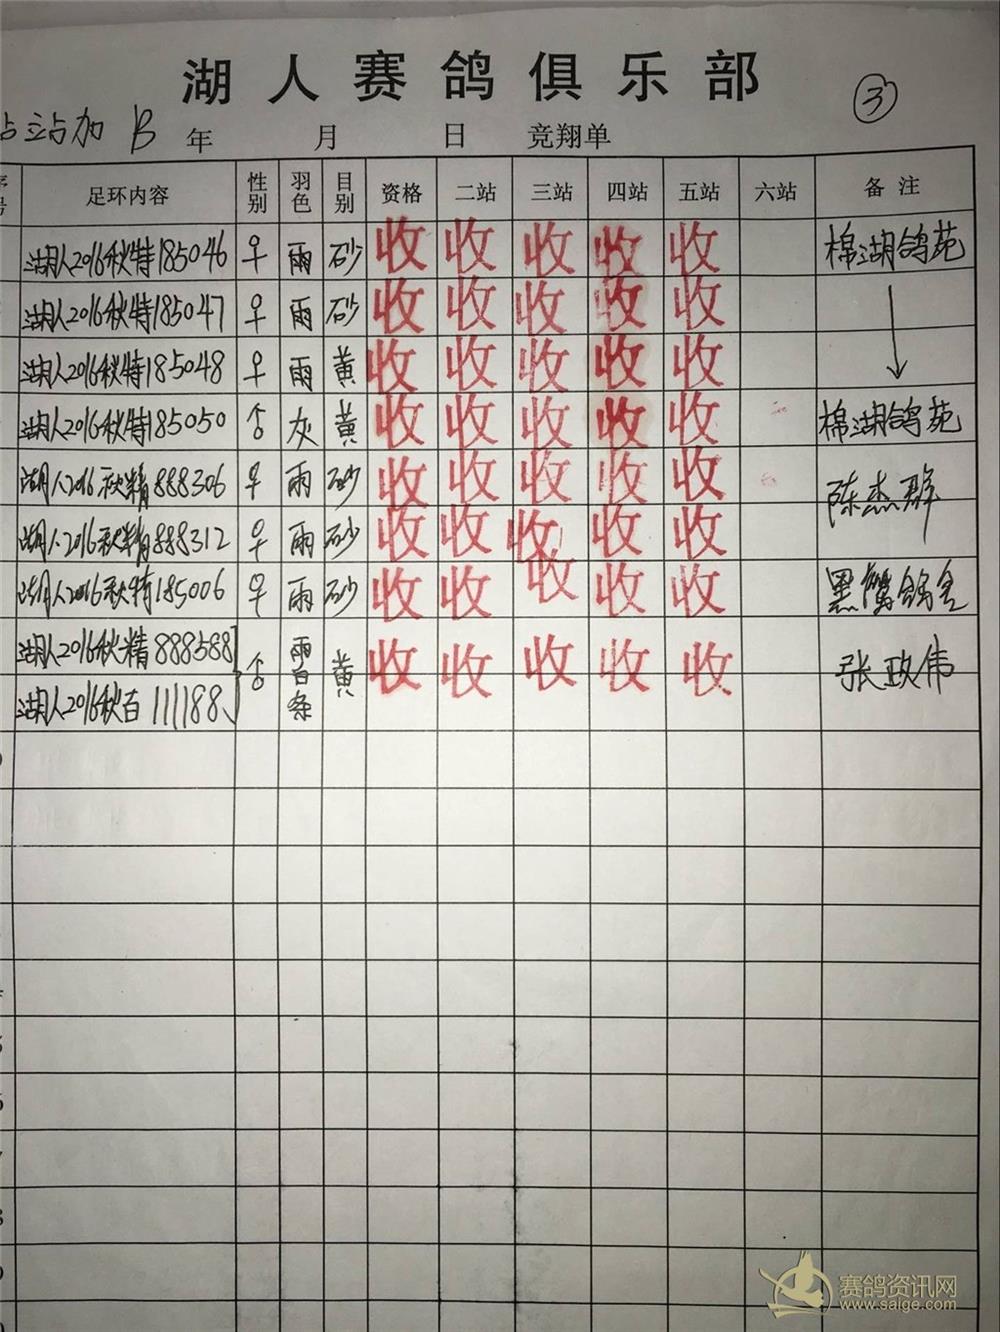 湖人赛鸽俱乐部
③
站站加 B 年 月 日 竞翔单
号 足环内容 性别 羽色 目别 资格 二站 三站 四站 五站 六站 备注
湖人2016秋特185046 ♀ 雨 砂 收 收 收 收 收 棉湖鸽苑
湖人2016秋特185047 ♀ 雨 砂 收 收 收 收 收
湖人2016秋特185048 ♀ 雨 黄 收 收 收 收 收
湖人2016秋特185050 灰 黄 收 收 收 收 收 棉湖鸽苑
湖人2016秋精888306 ♀ 雨 砂 收 收 收 收 收 陈杰群
湖人2016秋精888312 ♀ 雨 砂 收 收 收 收 收
湖人2016秋特185006 ♀ 雨 砂 收 收 收 收 收 黑鹰鸽舍
湖人2016秋精888588 雨白条 黄 收 收 收 收 收 张政伟
湖人2016秋百111188
赛鸽资讯网
www.saige.com